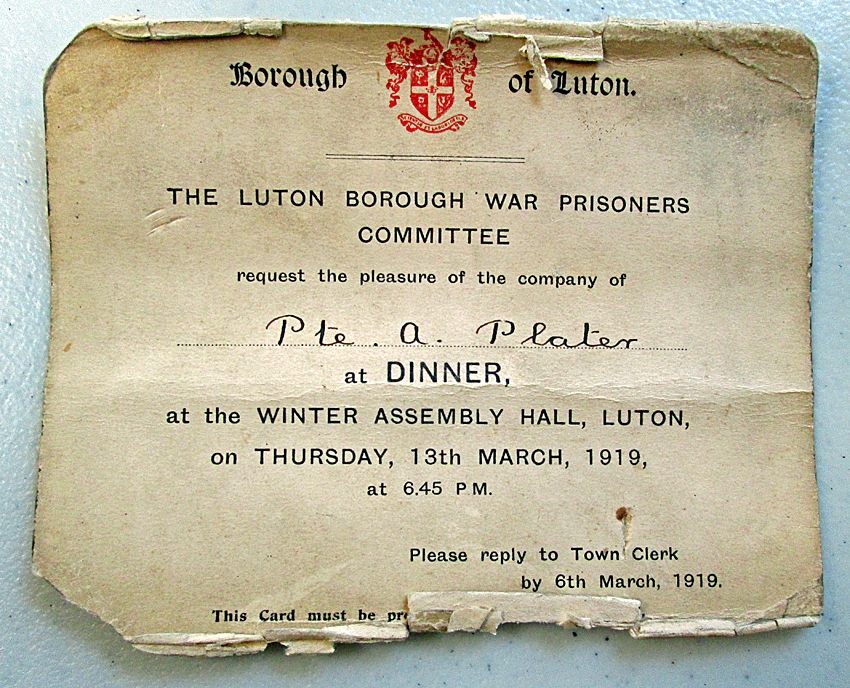 Borough of Luton.
THE LUTON BOROUGH WAR PRISONERS
COMMITTEE
request the pleasure of the company of
Pte. A. Plater
at DINNER,
at the WINTER ASSEMBLY HALL, LUTON,
on THURSDAY, 13th MARCH, 1919,
at 6.45 P M.
Please reply to Town Clerk
by 6th March, 1919.
This Card must be